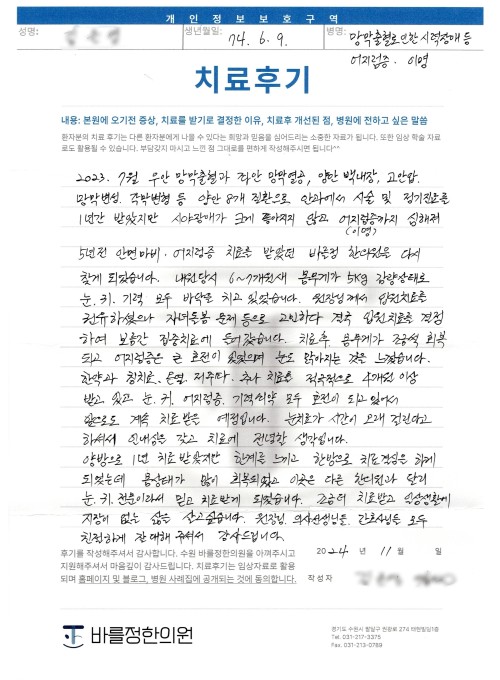 개인정보보호구역
성명: 생년월일: 74. 6. 9. 병명: 망막출혈로인한 시력장애 등
어지럼증 . 이명
치료후기
내용: 본원에 오기전 증상, 치료를 받기로 결정한 이유, 치료후 개선된 점, 병원에 전하고 싶은 말씀
환자분의 치료 후기는 다른 환자분에게 나을 수 있다는 희망과 믿음을 심어드리는 소중한 자료가 됩니다. 또한 임상 학술 자료
로도 활용될 수 있습니다. 부담갖지 마시고 느낀 점 그대로를 편하게 작성해주시면 됩니다^^
2023. 7월 우안 망막출혈과 좌안 망막열공, 양안 백내장, 고안압.
망막변성. 각막변형 등 양안 8개 질환으로 안과에서 시술 및 정기진료를
1년간 받았지만 시야장애가 크게 좋아지지 않고 어지럼증까지 심해져
(이명)
5년전 안면마비. 어지럼증 치료를 받았던 바른정 한의원을 다시
찾게 되었습니다. 내원당시 6~7개월새 몸무게가 5kg 감량상태로
눈. 귀. 기력 모두 바닥을 치고 있었습니다. 원장님께서 입원치료를
권유하셨으나 자녀돌봄 문제 등으로 고민하다 결국 입원치료를 결정
하여 보름간 집중치료에 들어갔습니다. 치료후 몸무게가 조금씩 회복
되고 어지럼증은 큰 호전이 있었으며 눈도 맑아지는 것을 느꼈습니다.
한약과 침치료. 추나 치료를 적극적으로 4개월 이상
받고 있고 눈. 귀. 어지럼증. 기력쇠약 모두 호전이 되고 있어서
앞으로도 계속 치료받을 예정입니다. 눈치료가 시간이 오래 걸린다고
하셔서 인내심을 갖고 치료에 전념할 생각입니다.
양방으로 1년 치료받았지만 한계를 느끼고 한방으로 치료결정을 하게
되었는데 몸상태가 많이 회복되었고 이곳은 다른 한의원과 달리
눈. 귀 전문이라서 믿고 치료받게 되었습니다. 조금더 치료받고 일상생활에
지장이 없는 삶을 살고싶습니다. 원장님. 의사선생님들. 간호사님들 모두
친절하게 잘 대해 주셔서 감사드립니다.
후기를 작성해주셔서 감사합니다. 수원 바를정한의원을 아껴주시고
지원해주셔서 마음깊이 감사드립니다. 치료후기는 임상자료로 활용
되며 홈페이지 및 블로그, 병원 사례집에 공개되는 것에 동의합니다.
2024 년 11 월 일
작성자
바를정한의원
경기도 수원시 팔달구 권광로 274 태한빌딩1층
Tel. 031-217-3375
Fax. 031-213-0789